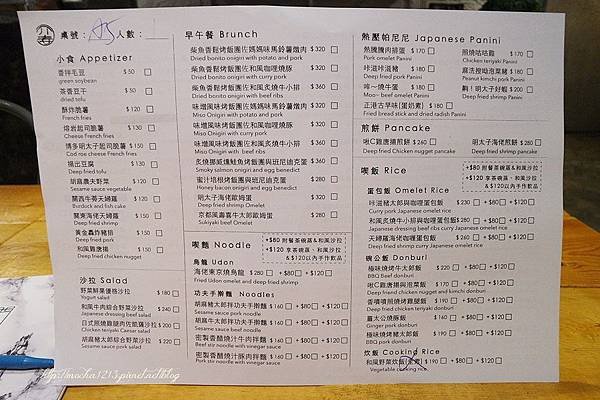 桌號: A5 人數:
小食 Appetizer
香拌毛豆 $50
green soybean
茶香豆干 $50
dried tofu
酥炸脆薯 $150
French fries
熔岩起司脆薯 $130
Cheese French fries
博多明太子起司脆薯 $150
Cod roe cheese French fries
揚出豆腐 $130
Deep fried tofu
胡麻農夫野菜 $150
Sesame sauce vegetable
關西牛蒡天婦羅 $130
Burdock and fish cake
關東海老天婦羅 $150
Deep fried shrimp
黃金轟炸豬排 $150
Deep fried pork
和風雞唐揚 $150
Deep fried chicken
沙拉 Salad
野菜鮮果優格沙拉 $180
Yogurt salad
和風牛肉綜合野菜沙拉 $240
Japanese dressing beef salad
日式照燒雞腿肉佐凱薩沙拉 $200
Chicken teriyaki Caesar salad
胡麻豬太郎綜合野菜沙拉 $220
Sesame sauce pork salad
早午餐 Brunch
柴魚香鬆烤飯團佐媽媽味馬鈴薯燉肉 $320
Dried bonito onigiri with potato and pork
柴魚香鬆烤飯團佐和風咖哩燒豚 $320
Dried bonito onigiri with curry pork
柴魚香鬆烤飯團佐和風炙燒牛小排 $360
Dried bonito onigiri with beef ribs
味增風味烤飯團佐媽媽味馬鈴薯燉肉 $320
Miso Onigiri with potato and pork
味增風味烤飯團佐和風咖哩燒豚 $320
Miso Onigiri with curry pork
味增風味烤飯團佐和風炙燒牛小排 $360
Miso Onigiri with beef ribs
炙燒挪威燻鮭魚烤飯團與班尼迪克蛋 $360
Smoky salmon onigiri and egg benedict
蜜汁培根烤飯團與班尼迪克蛋 $280
Honey bacon onigiri and egg benedict
明太子海老歐姆蛋 $320
Deep fried shrimp Omelet
京都風壽喜牛太郎歐姆蛋 $280
Sukiyaki beef Omelet
喫麵 Noodle
+$80 附餐茶碗蒸&和風沙拉
+$120 享茶碗蒸、和風沙拉
&$120以內手作飲品
烏龍 Udon
海老東京燒烏龍 $280 +$80 +$120
Fried Udon omelet and deep fried shrimp
功夫手擀麵 Noodles
胡麻豬太郎拌麵 $160 +$80 +$120
Sesame sauce pork noodle
胡麻牛太郎拌麵 $160 +$80 +$120
Sesame sauce beef noodle
密製香醋燒汁牛肉拌麵 $160 +$80 +$120
Beef stir noodle with vinegar sauce
密製香醋燒汁豚肉拌麵 $160 +$80 +$120
Pork stir noodle with vinegar sauce
熱壓帕尼尼 Japanese Panini
熱騰騰肉排蛋 $170
Pork omelet Panini
咔滋滋豬 $180
Deep fried pork Panini
哞～燒牛蛋 $180
Moo~ beef omelet Panini
正港古早味(蛋焰素) $180
Fried bread stick and dried radish Panini
照燒咕咕雞 $170
Chicken teriyaki Panini
麻法搜呦泡菜豬 $180
Peanut kimchi pork Panini
齁！明太子好蝦 $200
Deep fried shrimp Panini
煎餅 Pancake
啾C雞唐揚煎餅 $260
Deep fried Chicken nugget pancake
明太子海佬煎餅 $280
Deep fried shrimp pancake
喫飯 Rice
+$80 附餐茶碗蒸&和風沙拉
+$120 享茶碗蒸、和風沙拉
&$120以內手作飲品
蛋包飯 Omelet Rice
咔滋豬太郎咖哩蛋包飯 $230 +$80 +$120
Curry pork Japanese omelet rice
和風炙燒牛小排咖哩蛋包飯 $280 +$80 +$120
Japanese dressing beef ribs curry Japanese omelet rice
天婦羅海佬咖哩蛋包飯 $260 +$80 +$120
Deep fried shrimp curry Japanese omelet rice
碗公飯 Donburi
極味燒烤牛太郎飯 $220 +$80 +$120
BBQ Beef donburi
啾C雞唐揚與泡菜飯 $170 +$80 +$120
Deep fried chicken nugget and kimchi donburi
香噴噴照燒烤雞腿飯 $190 +$80 +$120
Grill chicken teriyaki donburi
薑太公燒豚飯 $160 +$80 +$120
Ginger pork donburi
極味燒烤豬太郎飯 $190 +$80 +$120
BBQ pork donburi
炊飯 Cooking Rice
和風野菜炊飯(蛋素) $190 +$80 +$120
Vegetable cooking rice